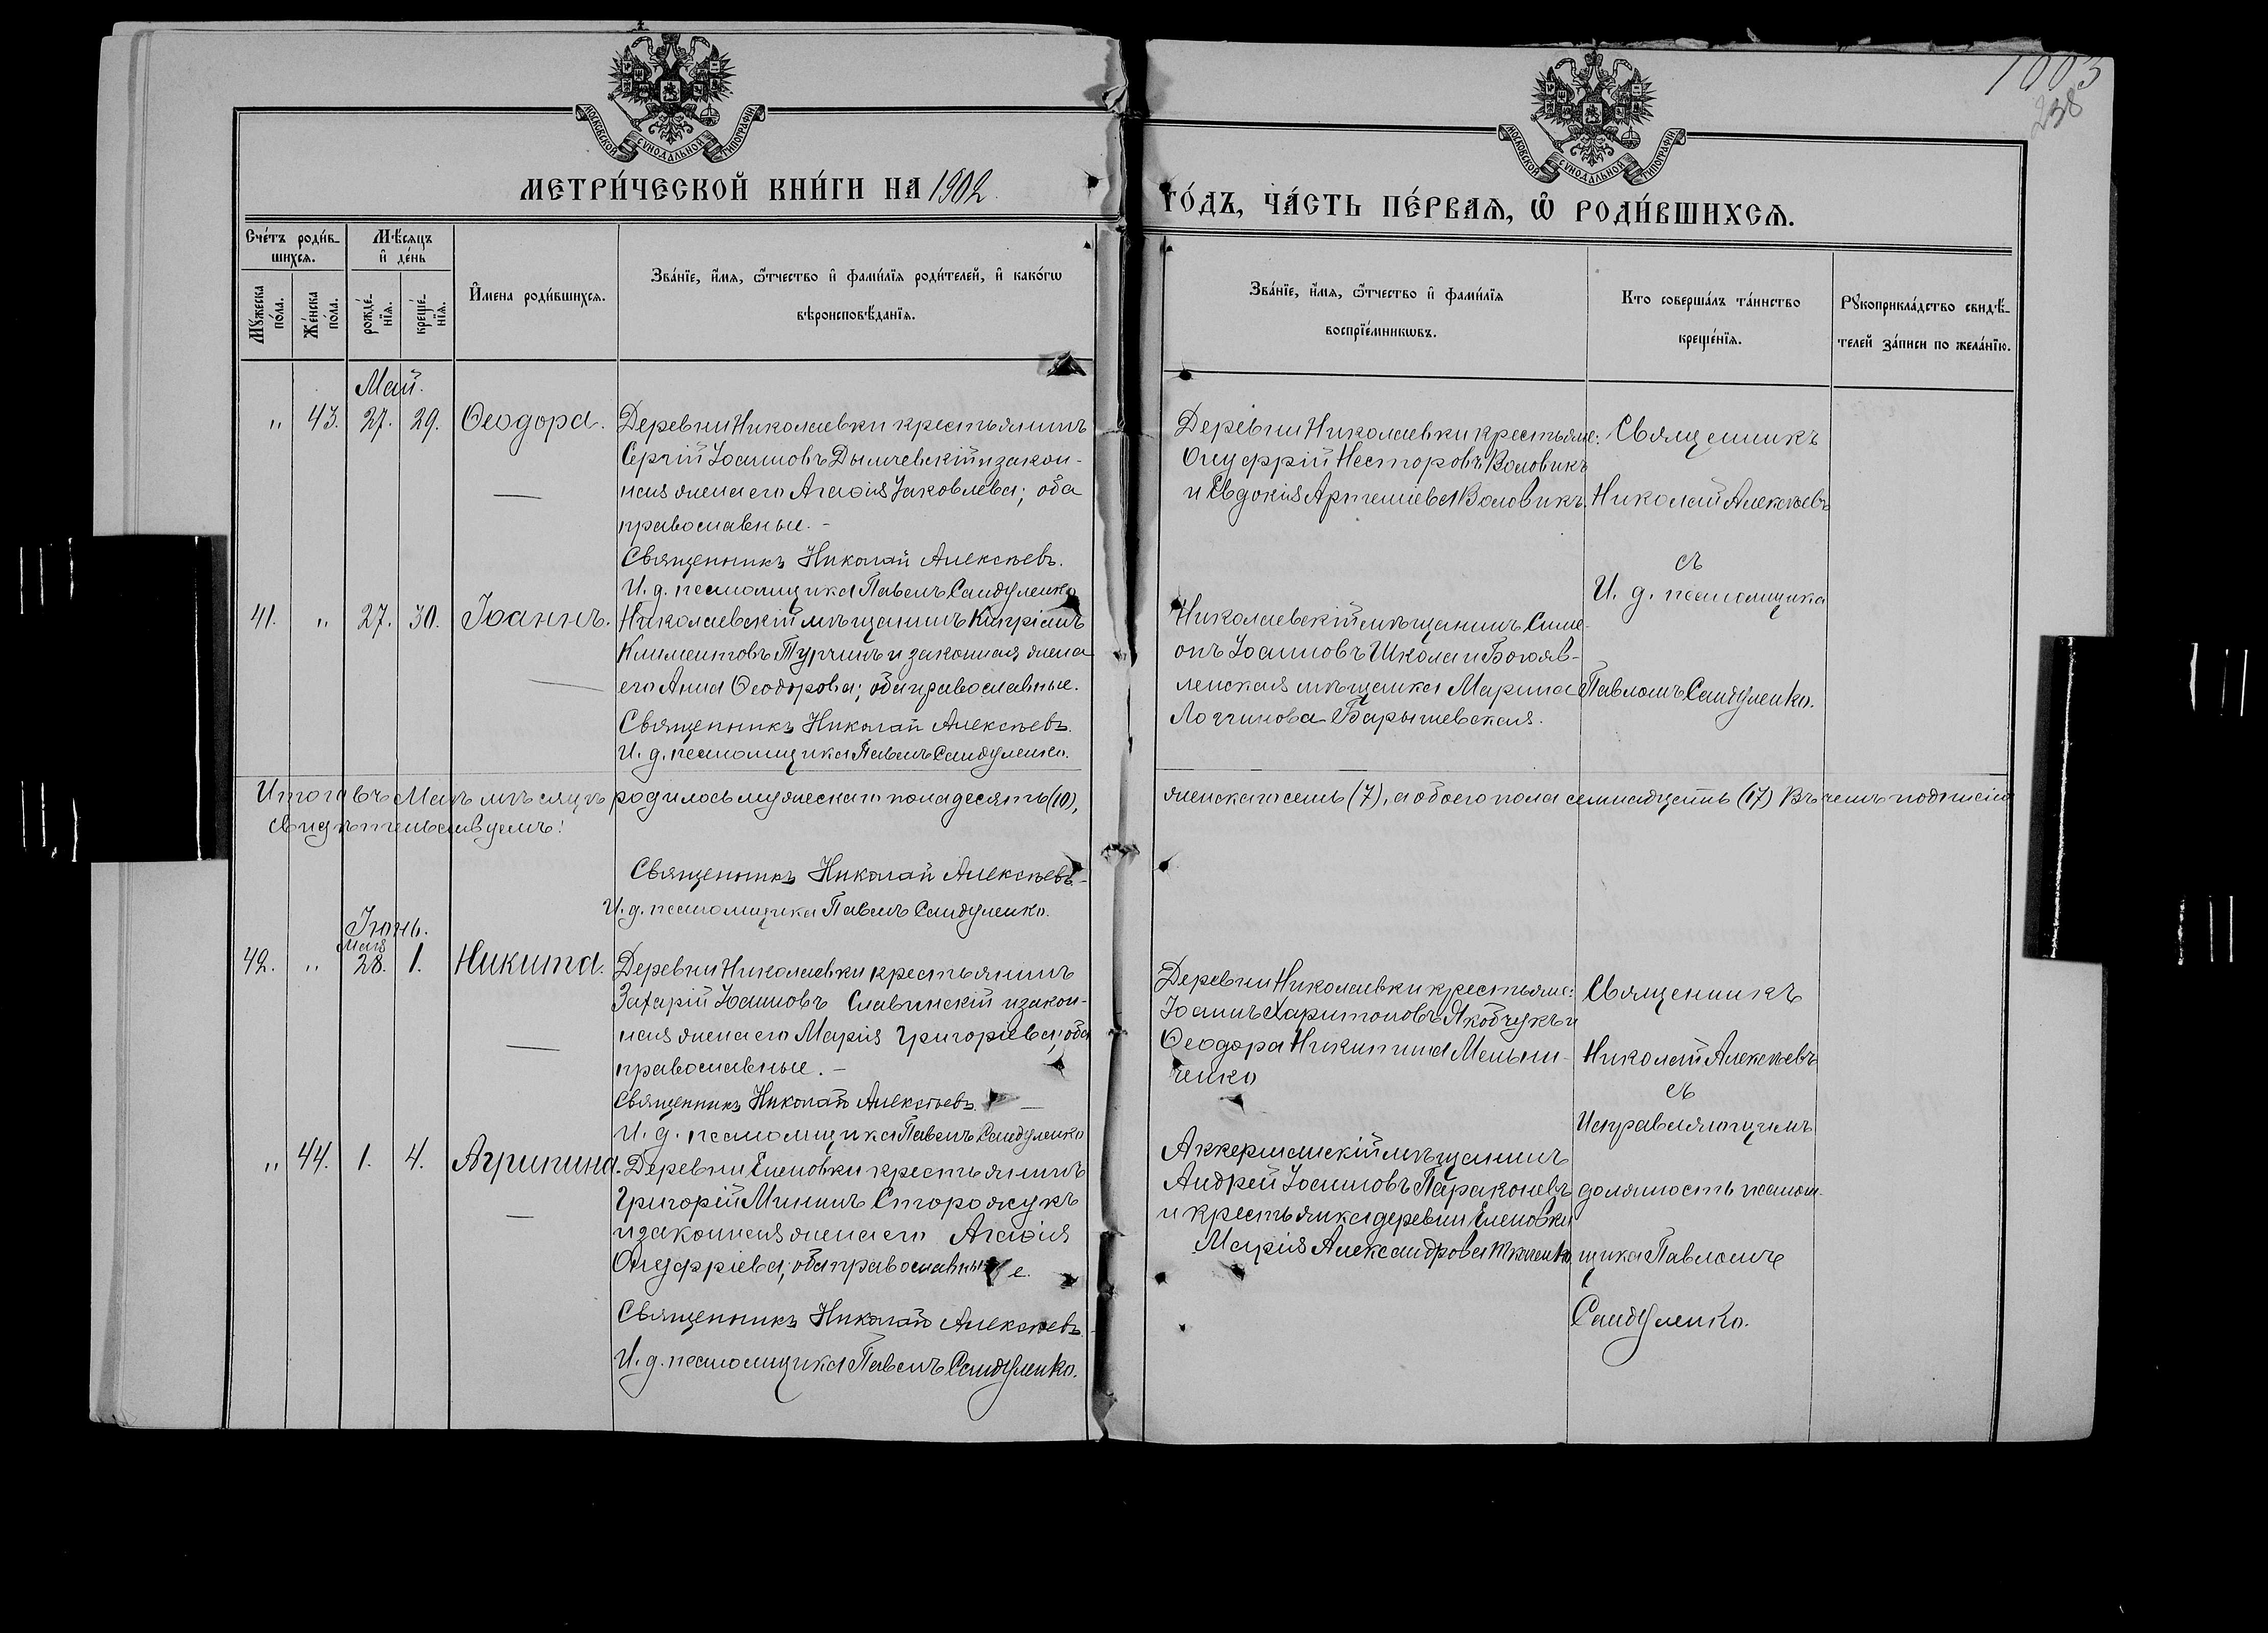 1003
238
МОСКОВСКОЙ СѴНОДАЛЬНОЙ ТИПОГРАФІИ
МОСКОВСКОЙ СѴНОДАЛЬНОЙ ТИПОГРАФІИ
МЕТРИ́ЧЕСКОЙ КНИ́ГИ НА 1902.
ГО́ДЪ, ЧА́СТЬ ПЕ́РВАѦ, Ѽ РОДИ́ВШИХСѦ.
Сче́тъ роди́в-
шихсѧ.
Мѣ́сяцъ
и҆ де́нь
Мꙋ́жеска
по́ла.
Же́нска
по́ла.
рожде́-
нїѧ.
креще́-
нїѧ.
И҆мена роди́вшихсѧ.
Зва́нїе, и҆́мѧ, ѻ҆́тчество и҆ фами́лїѧ роди́телей, и҆ како́гѡ
вѣроисповѣ́данїѧ.
Зва́нїе, и҆́мѧ, ѻ҆́тчество и҆ фами́лїѧ
воспрїе́мникѡвъ.
Кто соверша́лъ та́инство
креще́нїѧ.
Рꙋкоприкла́дство свидѣ́-
телей за́писи по жела́нїю.
Май.
" 43. 27. 29. Ѳеодора.
Деревни Николаевки крестьянинъ
Сергій Іоанновъ Дымчевскій и закон-
ная жена его Агаѳія Іаковлева; оба
православные. -
Священникъ Николай Алексѣевъ.
И. д. псаломщика Павелъ Сандуленко
Деревни Николаевки крестьяне:
Онуфрій Несторовъ Воловикъ
и Евдокія Артеміева Воловикъ.
Священникъ
Николай Алексѣевъ
съ
И. д. псаломщика
Павломъ Сандуленко.
41. " 27. 30. Іоаннъ.
Николаевскій мѣщанинъ Кипріанъ
Климентовъ Турчинъ и законная жена
его Анна Ѳеодорова; оба православные.
Священникъ Николай Алексѣевъ.
И. д. псаломщика Павелъ Сандуленко.
Николаевскій мѣщанинъ Симе-
онъ Іоанновъ Школа и Богояв-
ленская мѣщанка Марина
Логгинова Барышевская.
Итого въ Маѣ мѣсяцѣ родилось мужескаго пола десять (10),
женскаго семь (7), а обоего пола семнадцать (17) Въ чемъ подписью
свидѣтельствуемъ:
Священникъ Николай Алексѣевъ
И. д. псаломщика Павелъ Сандуленко.
Іюнь.
Мая
42. " 28. 1. Никита.
Деревни Николаевки крестьянинъ
Захарій Іоанновъ Славинскій и закон-
ная жена его Марія Григоріева; оба
православные. -
Священникъ Николай Алексѣевъ.
И. д. псаломщика Павелъ Сандуленко
Деревни Николаевки крестьяне:
Іоаннъ Харитоновъ Якобчукъ и
Ѳеодора Никитина Мельни-
ченко
Священникъ
Николай Алексѣевъ
съ
Исправляющимъ
должность псалом-
щика Павломъ
Сандуленко.
" 44. 1. 4. Агрипина.
Деревни Еленовки крестьянинъ
Григорій Мининъ Сторожукъ
и законная жена его Агаѳія
Онуфріева; оба православные.
Священникъ Николай Алексѣевъ.
И. д. псаломщика Павелъ Сандуленко.
Аккерманскій мѣщанинъ
Андрей Іоанновъ Параконевъ
и крестьянка деревни Еленовки
Марія Александрова Ткаченко